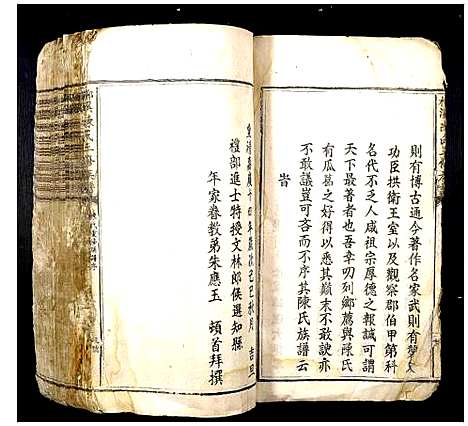 則有博古通今著作名家武則有
功臣拱衛王室以及觀察郡伯甲第科
名代不乏人咸祖宗厚德之報誠可謂
天下最著者也吾幸叨列鄉薦與陳氏
有瓜葛之好得以悉其巔末不敢諛亦
不敢議豈可吝言而不序其陳氏族譜云
旹
皇清嘉慶十四年歲次己巳秋月 吉旦
禮部進士特授文林郎候選知縣
年家眷教弟朱應玉 頓首拜撰